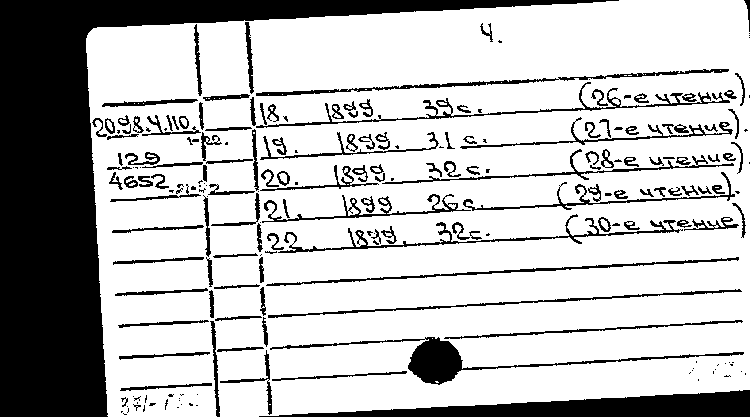 4.
18. 1899. 39 с. (26-е чтение).
20.98.4.110. 1-22. 19. 1899. 31 с. (27-е чтение).
129
4652 20. 1899. 32 с. (28-е чтение).
21. 1899. 26 с. (29-е чтение).
22. 1899. 32 с. (30-е чтение)